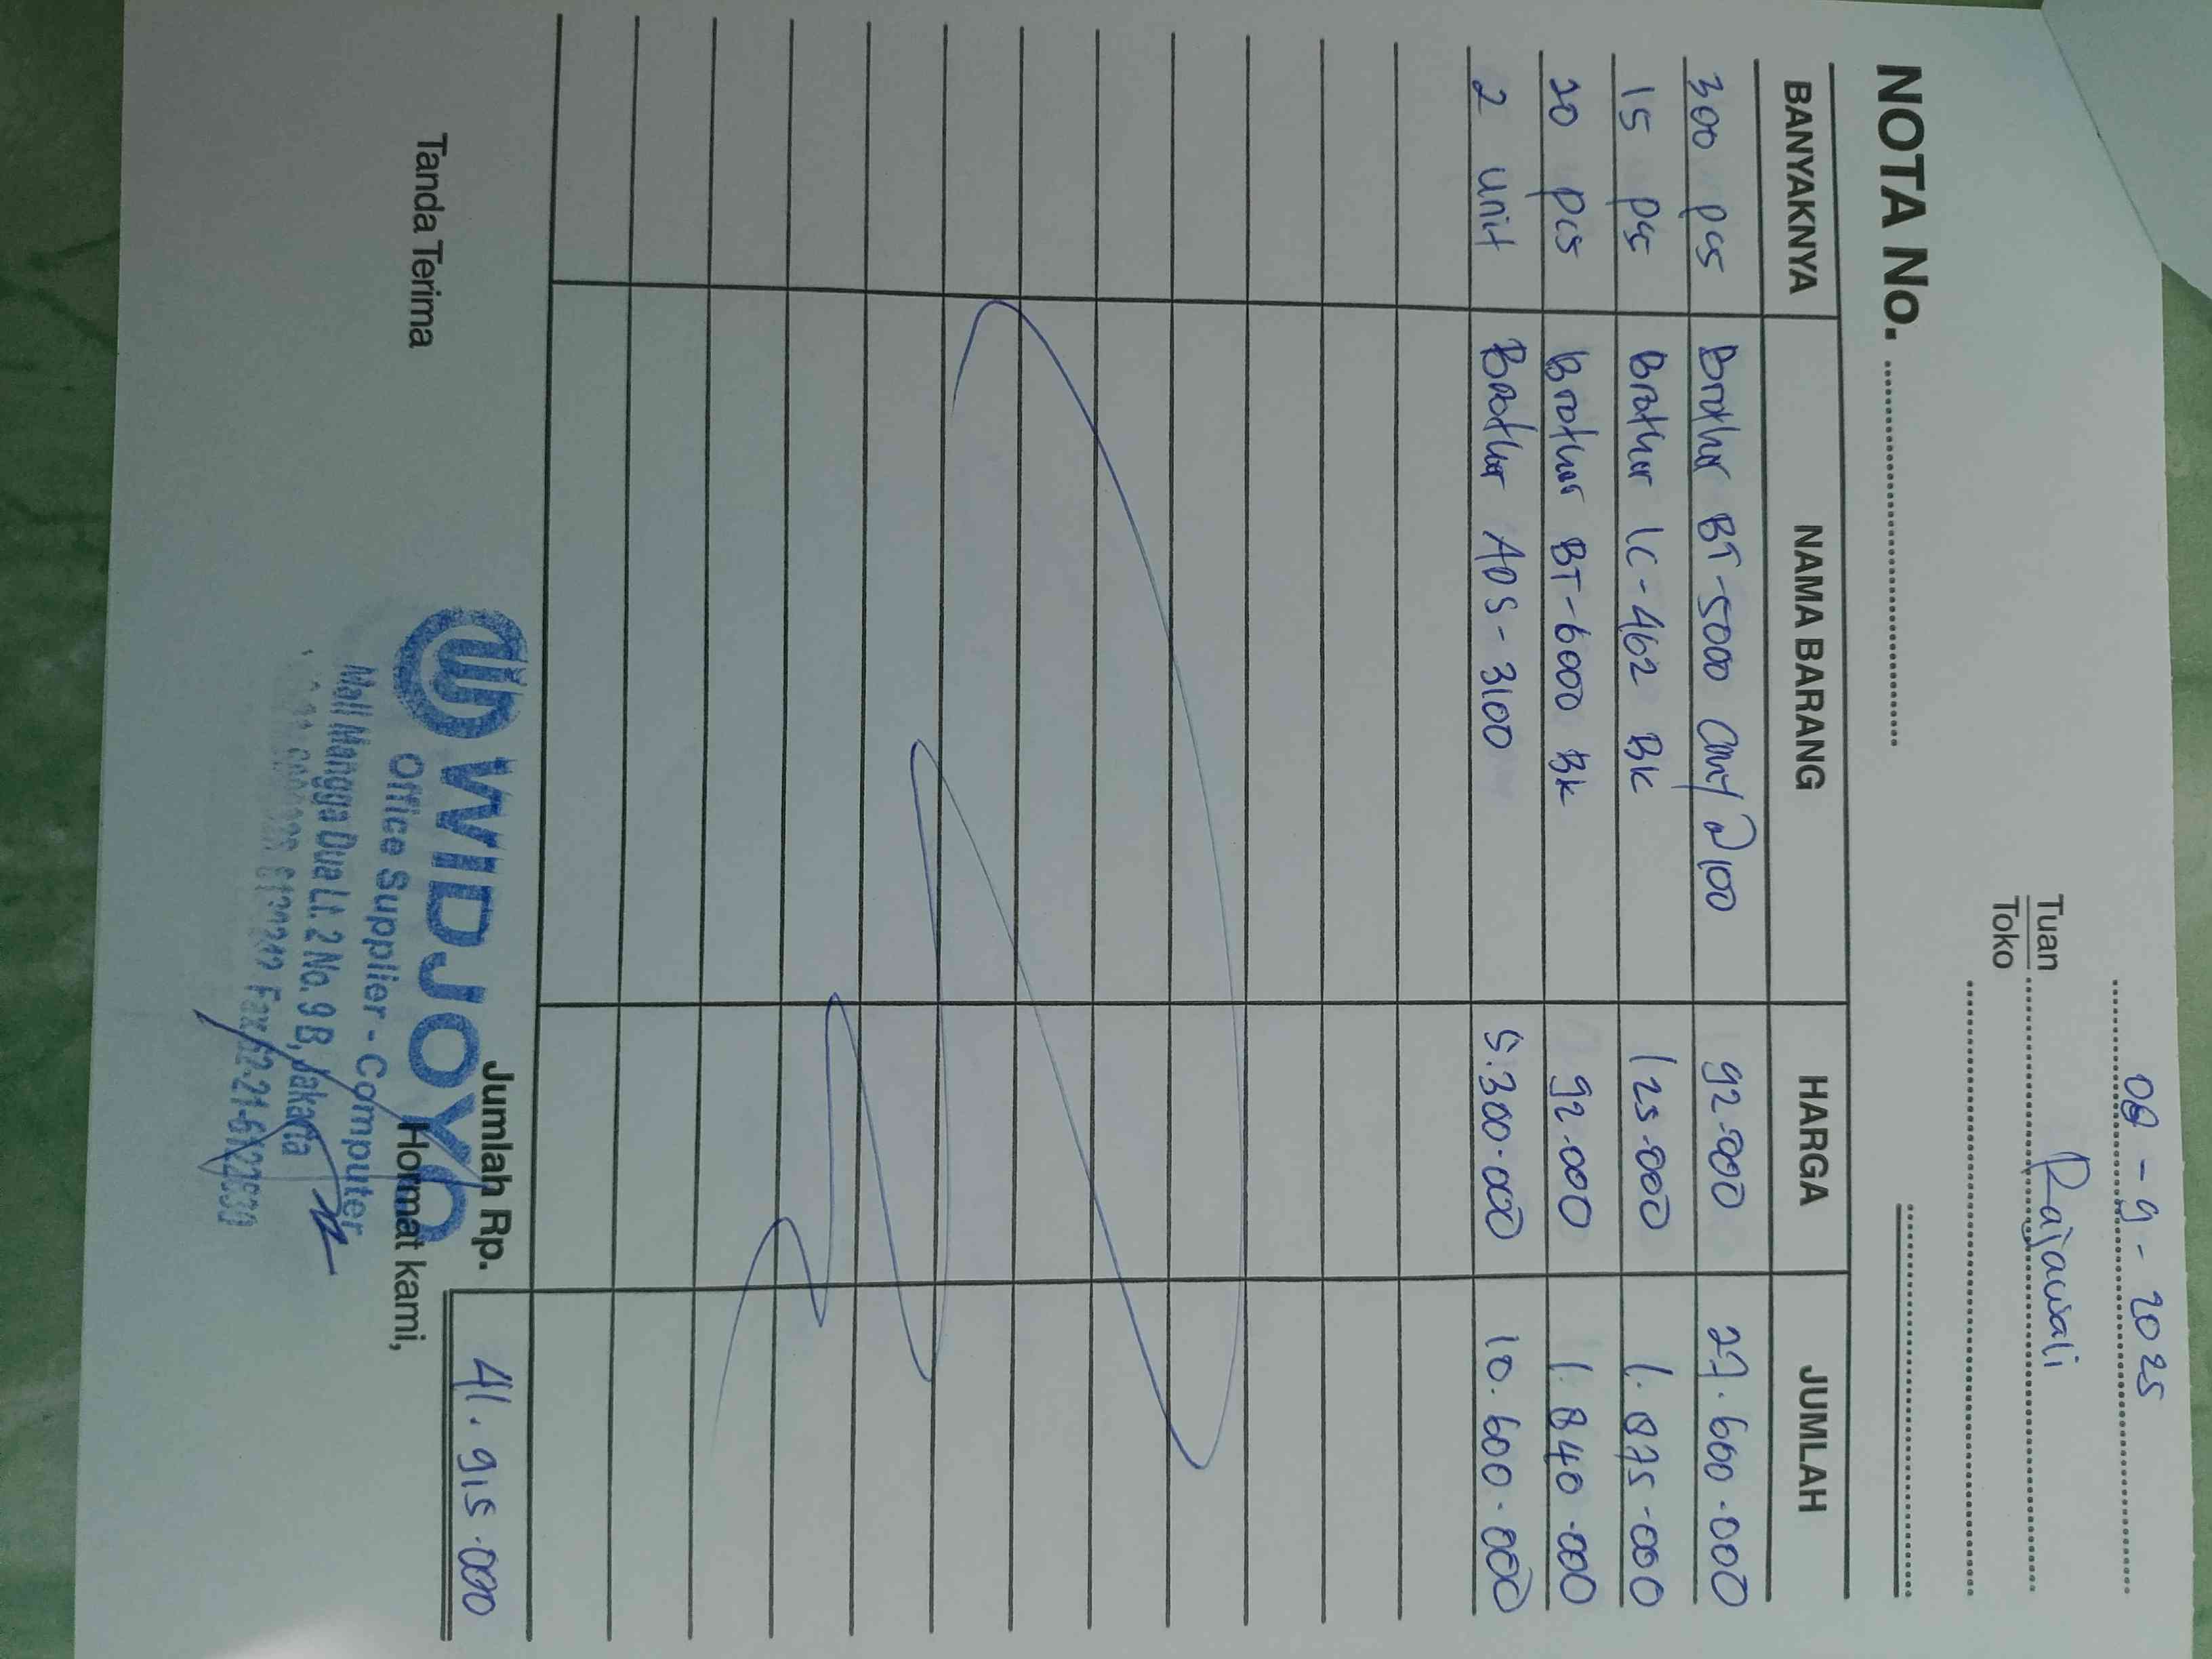 08 - 9 - 2025
Tuan Rajawali
Toko
NOTA No.
BANYAKNYA NAMA BARANG HARGA JUMLAH
300 pcs Brother BT-5000 cmy 2100 92.000 27.600.000
15 pcs Brother LC-462 BK 125.000 1.875.000
20 pcs Brother BT-6000 BK 92.000 1.840.000
2 unit Brother ADS-3100 5.300.000 10.600.000
Jumlah Rp. 41.915.000
Tanda Terima Hormat kami,
WIDJOYO
Office Supplier - Computer
Mall Mangga Dua Lt. 2 No. 9 B, Jakarta
Fax 62-21-6122630